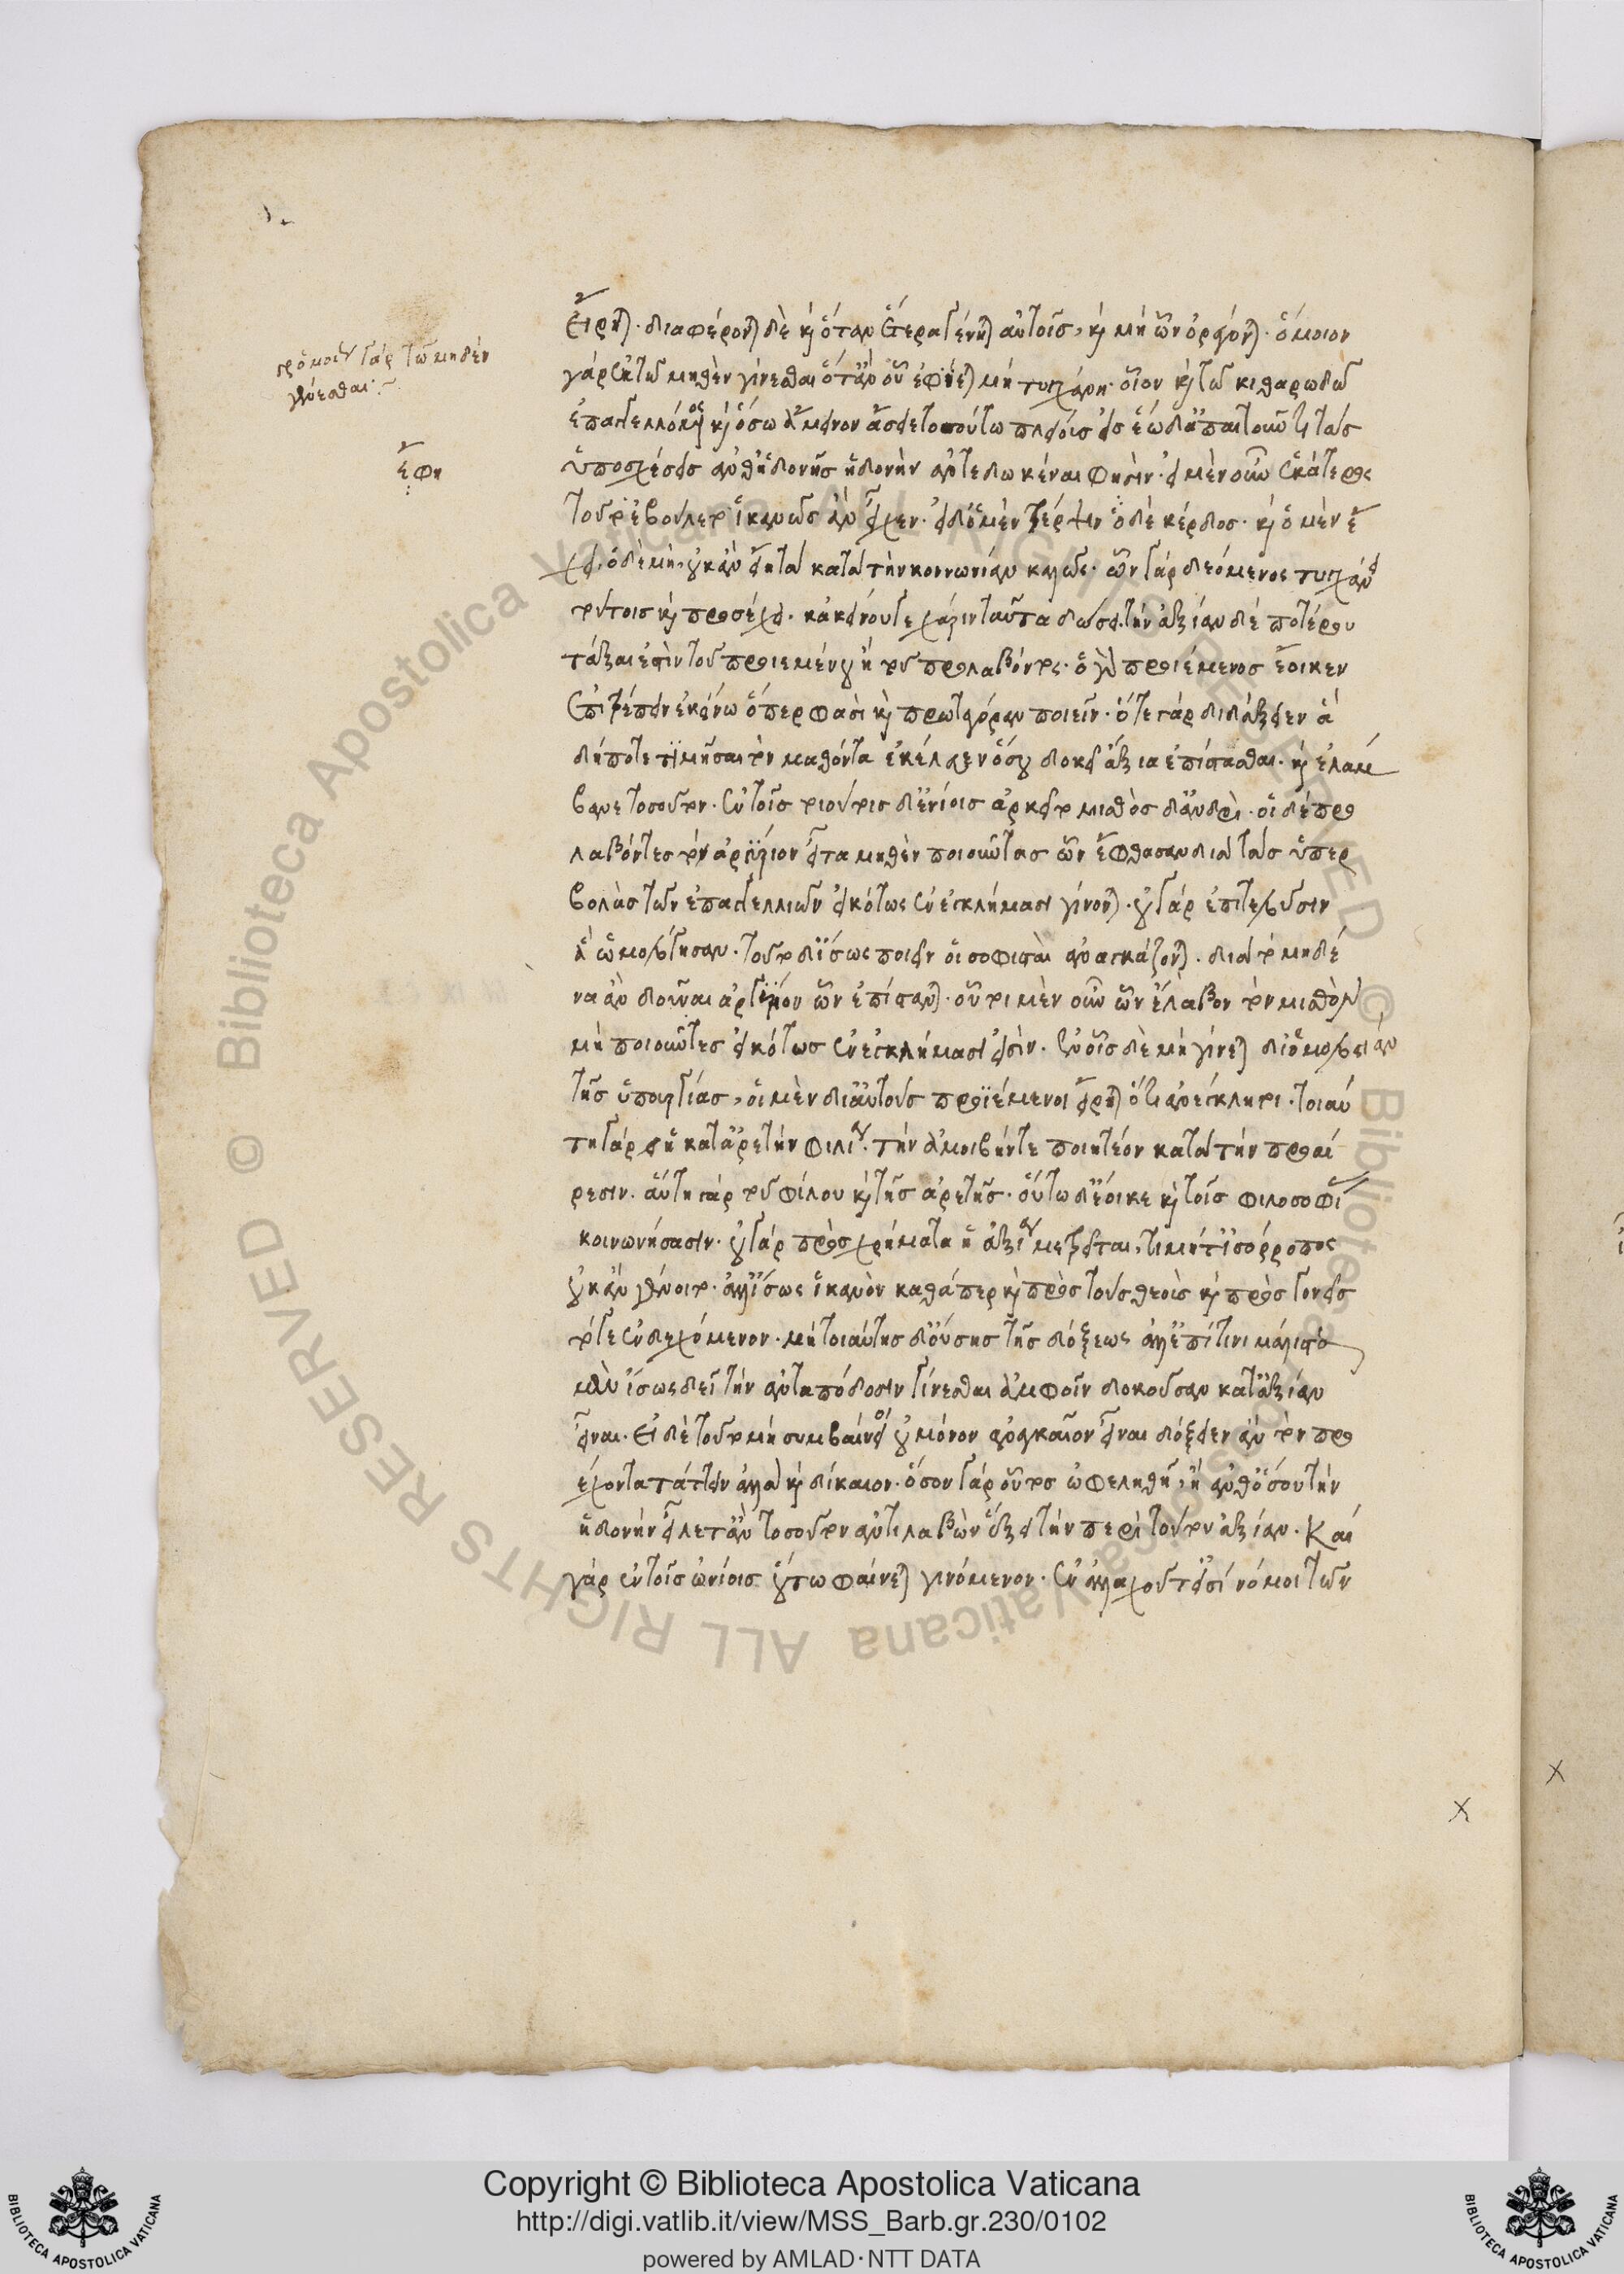 πρόμοιον γὰρ τῶ μηδὲν
γίνεσθαι·
ἔφη
εἴρηται· διαφέρονται δὲ καὶ ὅταν ἕτερα γένηται αὐτοῖς, καὶ μὴ ὧν ὀρέγονται· ὅμοιον
γὰρ τῶ μηθὲν γίνεσθαι ὅταν οὗ ἐφίεται μὴ τυγχάνη· οἷον καὶ τῶ κιθαρωδῶ
ἐπαγγελλόμενος καὶ ὅσω ἄμεινον ἄσειε τοσούτω πλείω· εἰς ἕω δ' ἀπαιτοῦντι τὰς
ὑποσχέσεις ἀνθ' ἡδονῆς ἡδονὴν ἀποδεδωκέναι φησίν· εἰ μὲν οὖν ἑκάτερος
τοῦτο ἐβούλετο ἱκανῶς ἂν εἶχεν· εἰ δ' ὁ μὲν τέρψιν ὁ δὲ κέρδος· καὶ ὁ μὲν ἔ
χει, ὁ δὲ μὴ, οὐκ ἂν εἴη τὰ κατὰ τὴν κοινωνίαν καλῶς· ὧν γὰρ δεόμενος τυγχάνει
τούτοις καὶ προσέχει· κἀκείνου γε χάριν ταῦτα δώσει· τὴν ἀξίαν δὲ ποτέρου
τάξαι ἐστὶν τοῦ προιεμένου ἢ τοῦ προλαβόντος· ὁ γὰρ προιέμενος ἔοικεν
ἐπιτρέπειν ἐκείνω ὅπερ φασὶ καὶ πρωταγόραν ποιεῖν· ὅτε γὰρ διδάξειεν ἁ
δήποτε τιμῆσαι τὸν μαθόντα ἐκέλευεν ὅσου δοκεῖ ἄξια ἐπίστασθαι· καὶ ἐλάμ
βανε τοσοῦτον· ἐν τοῖς τοιούτοις δ' ἐνίοις ἀρκεῖ τὸ μισθὸς δ' ἀνδρὶ· οἱ δὲ προ
λαβόντες τὸ ἀργύριον εἶτα μηθὲν ποιοῦντες ὧν ἔφθασαν διὰ τὰς ὑπερ
βολὰς τῶν ἐπαγγελιῶν εἰκότως ἐν ἐγκλήμασι γίνονται· οὐ γὰρ ἐπιτελοῦσιν
ἃ ὡμολόγησαν· τοῦτο δ' ἴσως ποιεῖν οἱ σοφισταὶ ἀναγκάζονται· διὰ τὸ μηδέ
να ἂν δοῦναι ἀργύριον ὧν ἐπίστανται· οὗτοι μὲν οὖν ὧν ἔλαβον τὸν μισθὸν
μὴ ποιοῦντες εἰκότως ἐν ἐγκλήμασί εἰσιν· ἐν οἷς δὲ μὴ γίνεται διομολογία
τῆς ὑπουργίας, οἱ μὲν δι' αὐτοὺς προϊέμενοι εἴρηται ὅτι ἀνέγκλητοι· τοιαύ
τη γὰρ ἡ κατ' ἀρετὴν φιλία· τὴν ἀμοιβήν τε ποιητέον κατὰ τὴν προαί
ρεσιν· αὕτη γὰρ τοῦ φίλου καὶ τῆς ἀρετῆς· οὕτω δ' ἔοικε καὶ τοῖς φιλοσοφί
κοινωνήσασιν· οὐ γὰρ πρὸς χρήματα ἡ ἀξία μετρεῖται, τιμή τ' ἰσόρροπος
οὐκ ἂν γένοιτο· ἀλλ' ἴσως ἱκανὸν καθάπερ καὶ πρὸς τοὺς θεοὺς καὶ πρὸς γονεῖς
τό γε ἐνδεχόμενον· μὴ τοιαύτης δ' οὔσης τῆς δόξεως ἀλλ' ἐπί τινι μάλιστα
μὲν ἴσως δεῖ τὴν ἀνταπόδοσιν γίνεσθαι ἀμφοῖν δοκοῦσαν κατ' ἀξίαν
εἶναι· εἰ δὲ τοῦτο μὴ συμβαίνοι οὐ μόνον ἀναγκαῖον εἶναι δόξειεν ἂν τὸν προ
έχοντα τάττειν ἀλλὰ καὶ δίκαιον· ὅσον γὰρ οὗτος ὠφελήθη, ἢ ἀνθ' ὅσου τὴν
ἡδονὴν εἵλετ' ἂν τοσοῦτον ἀντιλαβὼν ἕξει τὴν περὶ τούτου ἀξίαν· Καὶ
γὰρ ἐν τοῖς ὠνίοις οὕτω φαίνεται γινόμενον· ἐν ἀλλαχοῦ τ' εἰσὶ νόμοι τῶν
Copyright © Biblioteca Apostolica Vaticana
http://digi.vatlib.it/view/MSS_Barb.gr.230/0102
powered by AMLAD·NTT DATA